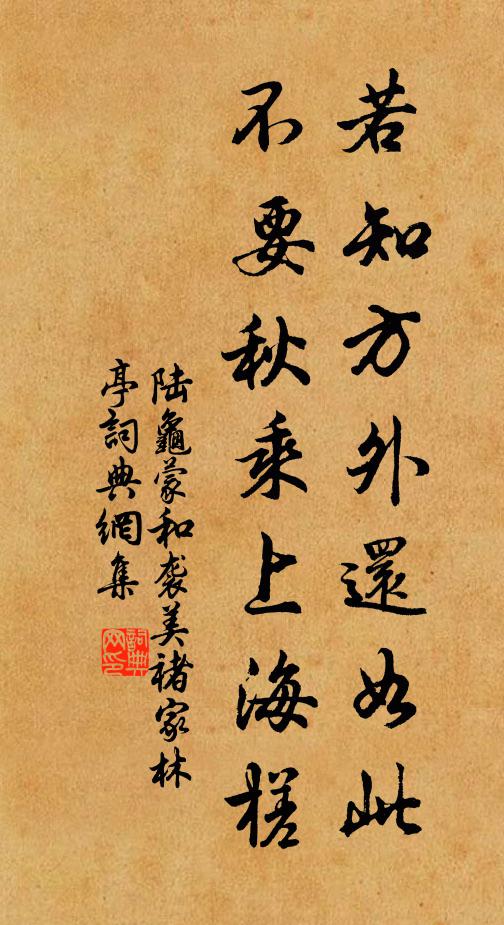 若知方外還如此
不要秋乘上海槎
陆龜蒙和袭美褚家林
亭詞典網集
詞典网印